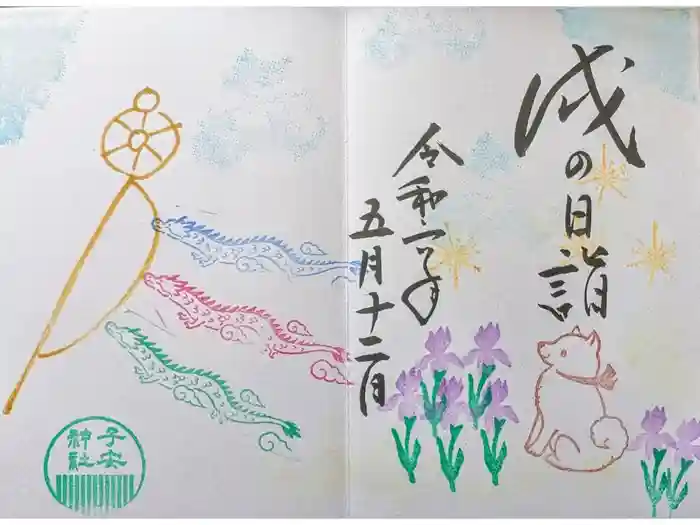 戌の日詣
令和 年
五月十二日
子安
神社